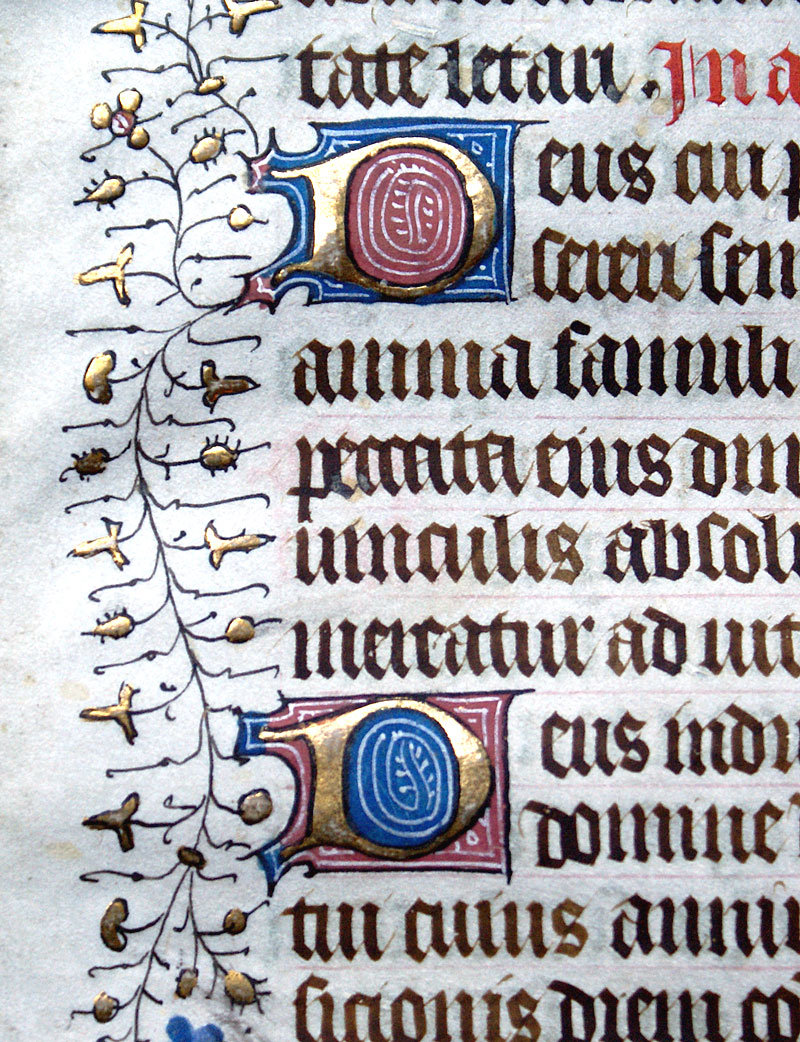 tate letari. In a
Deus cui p
seren sen
anima famuli
peccata eius dm
uinculis absolu
mereatur ad uit
Deus indu
domine
tui cuius anniu
sicionis diem co